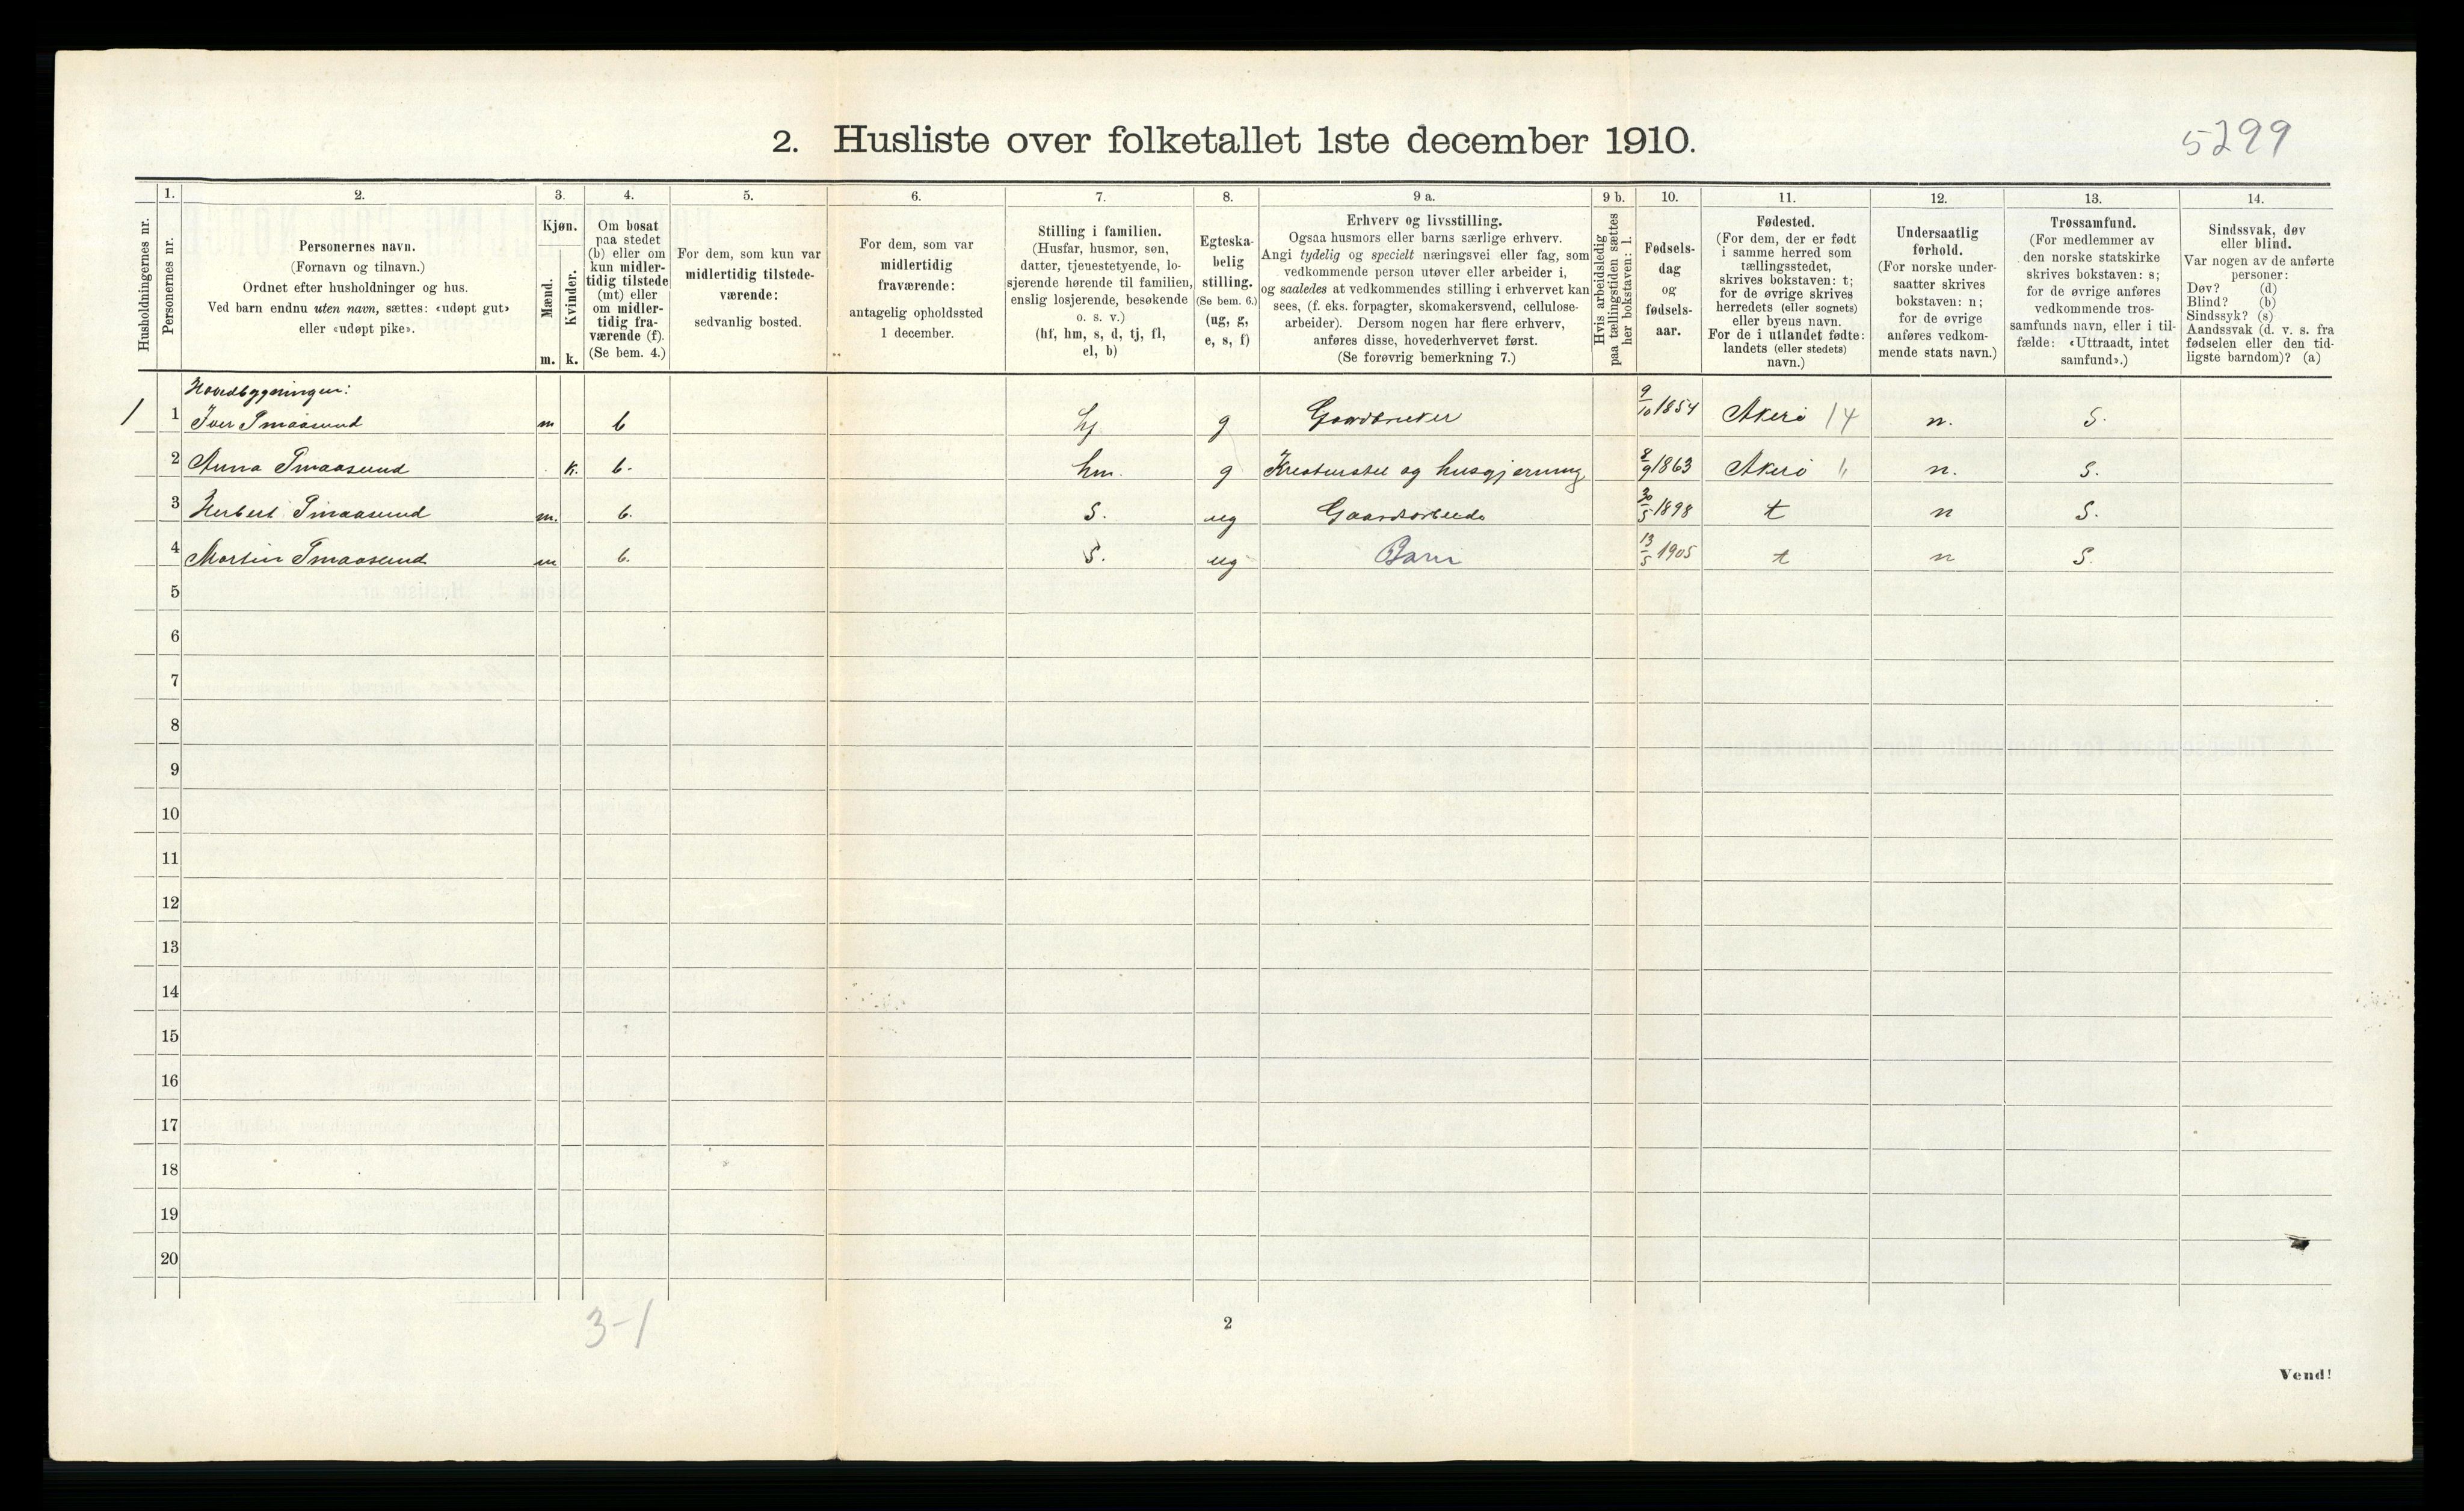 2. Husliste over folketallet 1ste december 1910.
5299
Husholdningernes nr.
1.
Personernes nr.
2.
Personernes navn.
(Fornavn og tilnavn.)
Ordnet efter husholdninger og hus.
Ved barn endnu uten navn, sættes: «udøpt gut»
eller «udøpt pike».
3.
Kjøn.
Mænd.
Kvinder.
m. k.
4.
Om bosat
paa stedet
(b) eller om
kun midler-
tidig tilstede
(mt) eller
om midler-
tidig fra-
værende (f).
(Se bem. 4.)
5.
For dem, som kun var
midlertidig tilstede-
værende:
sedvanlig bosted.
6.
For dem, som var
midlertidig
fraværende:
antagelig opholdssted
1 december.
7.
Stilling i familien.
(Husfar, husmor, søn,
datter, tjenestetyende, lo-
sjerende hørende til familien,
enslig losjerende, besøkende
o. s. v.)
(hf, hm, s, d, tj, fl,
el, b)
8.
Egteska-
belig
stilling.
(Se bem. 6.)
(ug, g,
e, s, f)
9 a.
Erhverv og livsstilling.
Ogsaa husmors eller barns særlige erhverv.
Angi tydelig og specielt næringsvei eller fag, som
vedkommende person utøver eller arbeider i,
og saaledes at vedkommendes stilling i erhvervet kan
sees, (f. eks. forpagter, skomakersvend, cellulose-
arbeider). Dersom nogen har flere erhverv,
anføres disse, hovederhvervet først.
(Se forøvrig bemerkning 7.)
9 b.
Hvis arbeidsledig
paa tællingstiden sættes
her bokstaven: l.
10.
Fødsels-
dag
og
fødsels-
aar.
11.
Fødested.
(For dem, der er født
i samme herred som
tællingsstedet,
skrives bokstaven: t;
for de øvrige skrives
herredets (eller sognets)
eller byens navn.
For de i utlandet fødte:
landets (eller stedets)
navn.)
12.
Undersaatlig
forhold.
(For norske under-
saatter skrives
bokstaven: n;
for de øvrige
anføres vedkom-
mende stats navn.)
13.
Trossamfund.
(For medlemmer av
den norske statskirke
skrives bokstaven: s;
for de øvrige anføres
vedkommende tros-
samfunds navn, eller i til-
fælde: «Uttraadt, intet
samfund».)
14.
Sindssvak, døv
eller blind.
Var nogen av de anførte
personer:
Døv? (d)
Blind? (b)
Sindssyk? (s)
Aandssvak (d. v. s. fra
fødselen eller den tid-
ligste barndom)? (a)
Hovedbygningen:
1 1 Iver Smaasund m b hf g Gaardbruker 9/10 1854 Akerø 14 n. S.
2 Anna Smaasund k. b. hm. g Kreaturstel og husgjerning 8/9 1863 Akerø " n. S.
3 Herbert Smaasund m. b. S. ug Gaardsarbeide 30/5 1898 t n S.
4 Martin Smaasund m b. S. ug Barn 13/5 1905 t n S.
5
6
7
8
9
10
11
12
13
14
15
16
17
18
19
20
3-1
2
Vend!